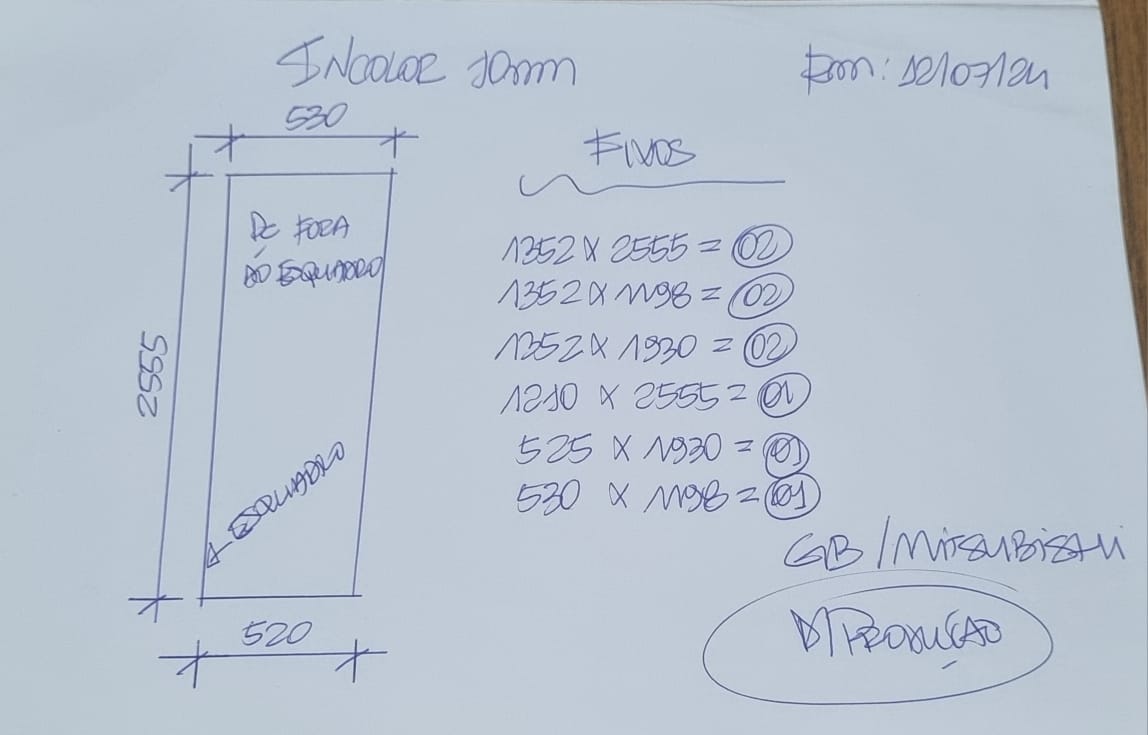 INCOLOR 10mm
Em: 12/07/24
530
FIXOS
PÇ FORA
DO ESQUADRO
2555
ESQUADRO
520
1352 X 2555 = 02
1352 X 1198 = 02
1352 X 1930 = 02
1210 X 2555 = 01
525 X 1930 = 01
530 X 1198 = 01
GB / MITSUBISHI
P/ PRODUÇÃO